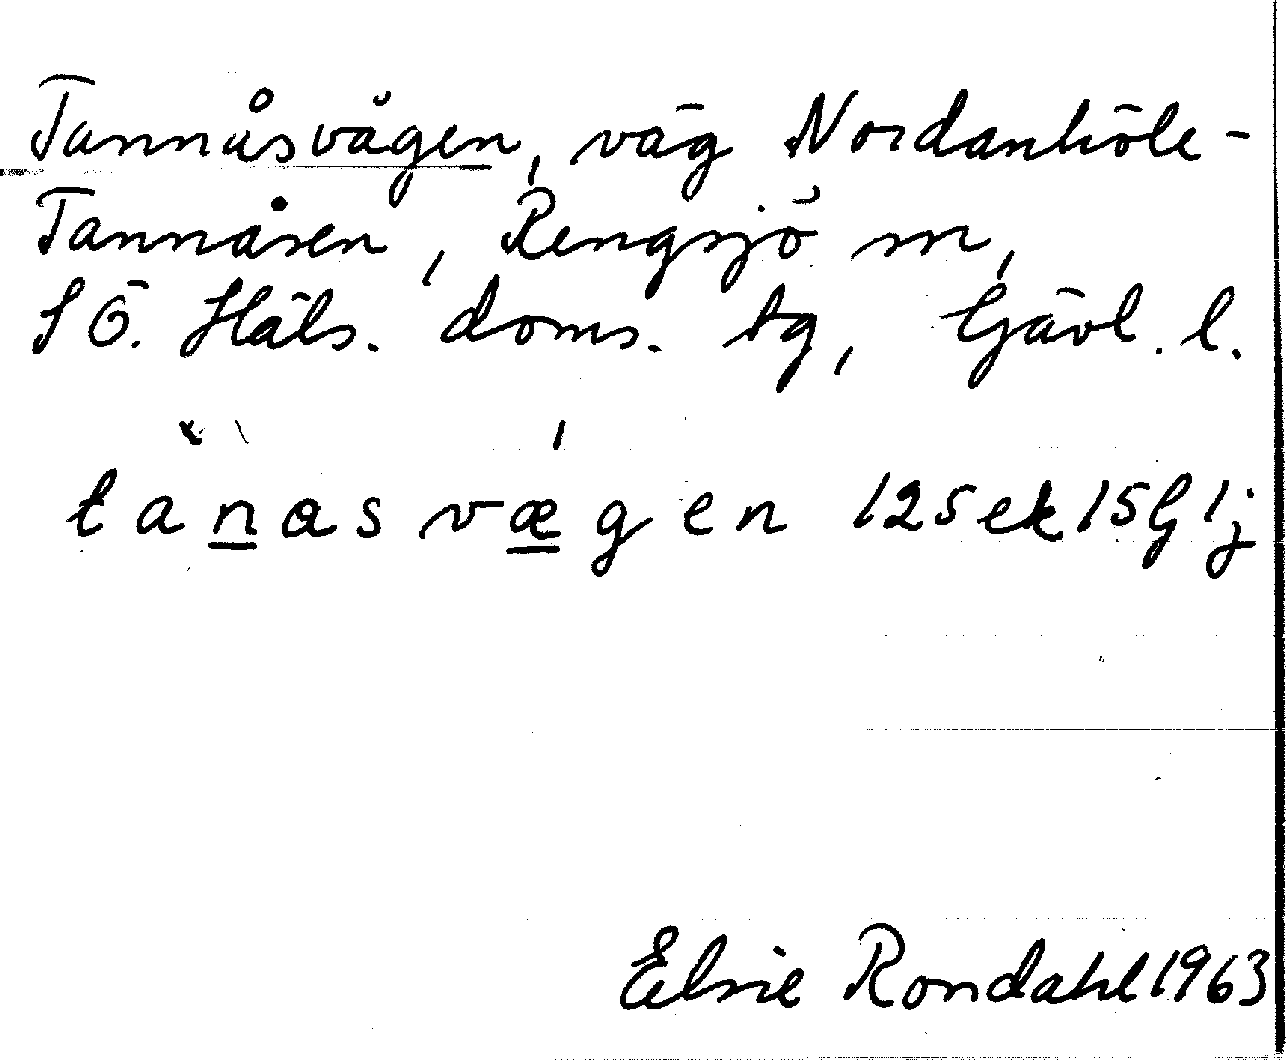 Tannåsvägen, väg Nordanhöle-
Tannåsen, Rengsjö sn,
SÖ. Häls. doms. tg, Gävl. l.
tanasvægen 12Sek15G1j
Elsie Rondahl 1963